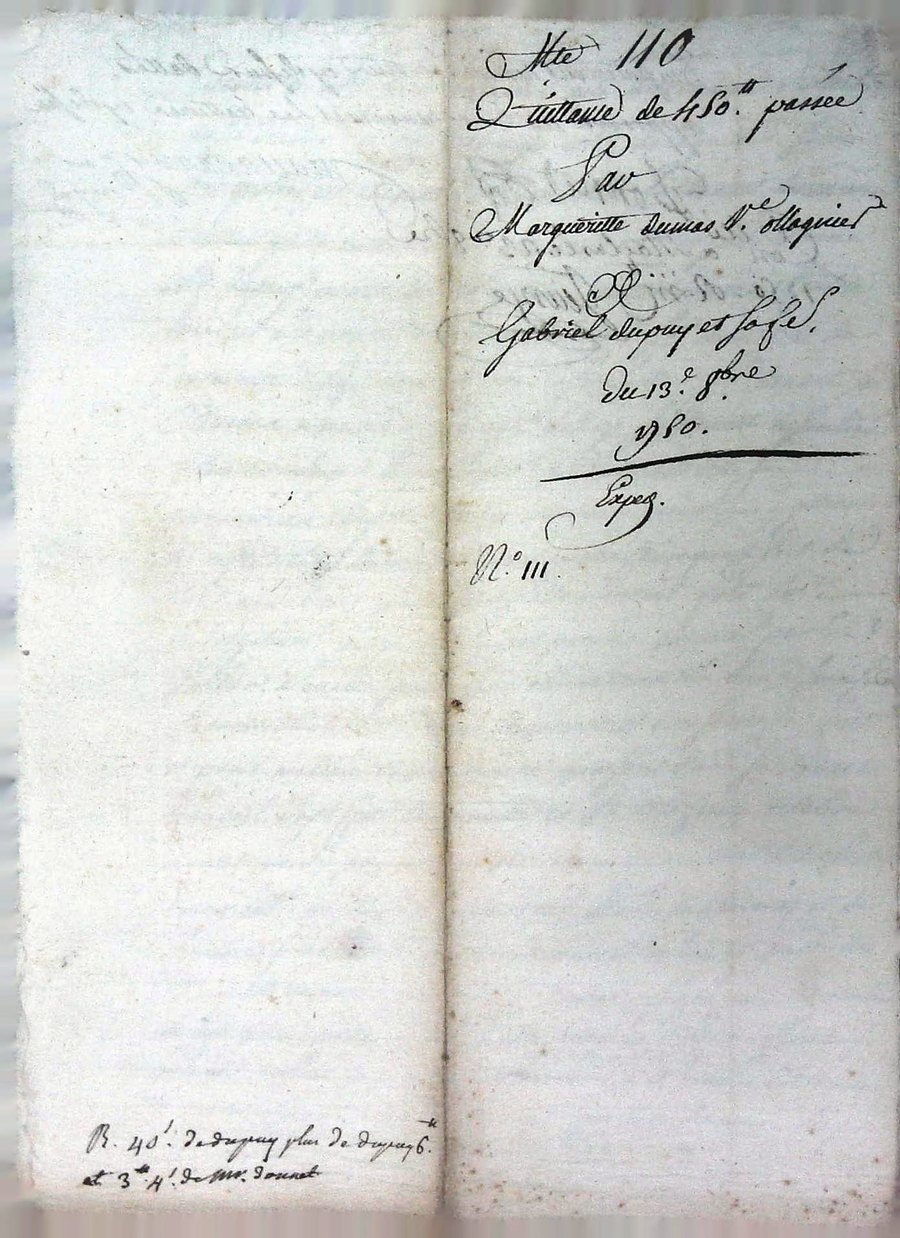 110
Quittance de 450.tt passée
Par
Margueritte dumas V.e ollagnier
A
Gabriel dupuy et sa fe.
du 13.e 8.bre
1750.
Exped.
N.o 111.
R. 40s. de dupuy plus de dupuy 6tt.
et 3tt. 4s. de Mr. donnet